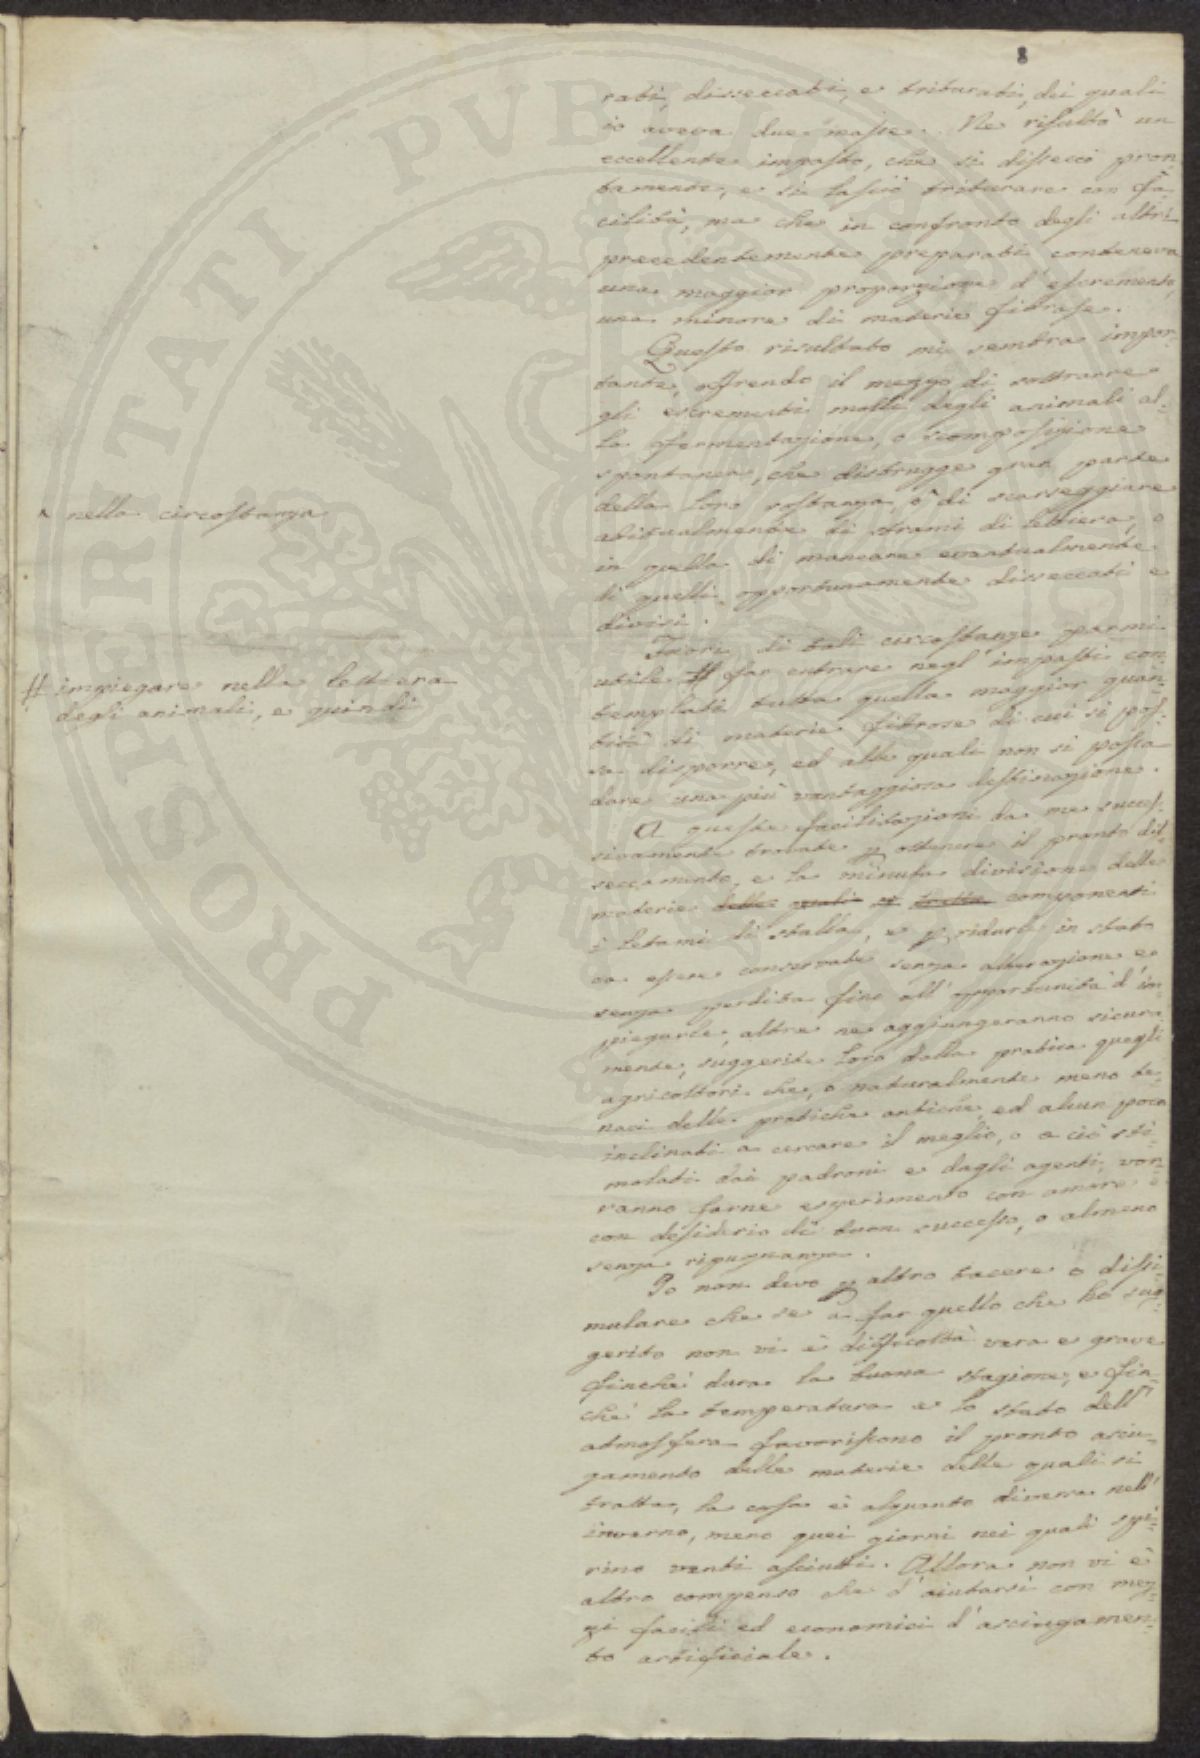 8
rati, disseccati, e triturati, dei quali
io aveva due masse. Ne risultò un
eccellente impasto, che si disseccò pron-
tamente, e si lasciò triturare con fa-
cilità, ma che in confronto degli altri
precedentemente preparati conteneva
una maggior proporzione d'escremento,
una minore di materie fibrose.
Questo risultato mi sembra impor-
tante, offrendo il mezzo di sottrarre
gli escrementi molli degli animali al-
la fermentazione, o scomposizione
spontanea, che distrugge gran parte
della loro sostanza, ^ di scarseggiare
^ nella circostanza
abitualmente di strami di lettiera, o
in quella di mancare eventualmente
di quelli opportunamente disseccati e
divisi.
Fuori di tali circostanze parmi
utile # far entrare negl'impasti con
# impiegare nella lettiera
degli animali, e quindi
templati tutta quella maggior quan-
tità di materie fibrose di cui si pos-
sa disporre, ed alle quali non si possa
dare una più vantaggiosa destinazione.
A queste facilitazioni da me succes-
sivamente trovate p ottenere il pronto dis-
seccamento, e la minuta divisione delle
materie delle quali si tratta componenti
i letami di stalla, e p ridurle in stato
da essere conservate senza alterazione e
senza perdita fino all'opportunità d'im-
piegarle, altre ne aggiungeranno sicura-
mente, suggerite loro dalla pratica quegli
agricoltori che, o naturalmente meno te-
naci delle pratiche antiche, ed alcun poco
inclinati a cercare il meglio, o a ciò sti-
molati dai padroni e dagli agenti, vor-
ranno farne esperimento con amore e
con desiderio di buon successo, o almeno
senza ripugnanza.
Io non devo p altro tacere o dissi-
mulare che se a far quello che ho sug-
gerito non vi è difficoltà vera e grave
finchè dura la buona stagione, e fin-
chè la temperatura e lo stato dell'
atmosfera favoriscono il pronto asciu-
gamento delle materie delle quali si
tratta, la cosa è alquanto diversa nell'
inverno, meno quei giorni nei quali spi-
rino venti asciutti. Allora non vi è
altro compenso che d'aiutarsi con mez-
zi facili ed economici d'asciugamen-
to artificiale.
PROSPERITATI PVBLICAE